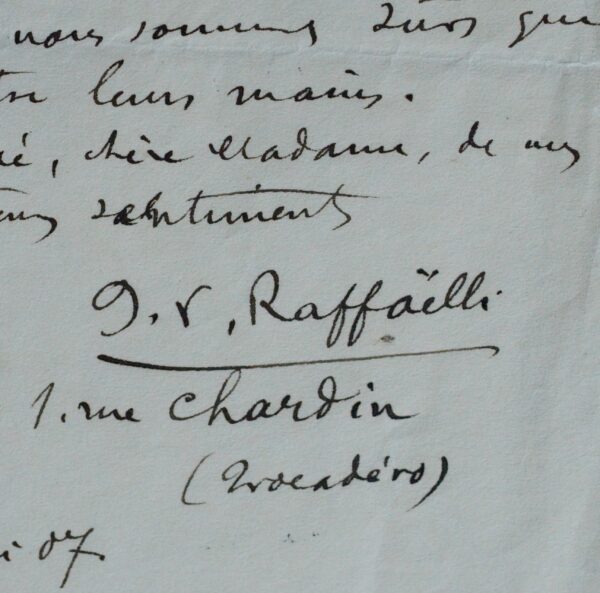 nous sommes sûrs que
leurs mains.
é, chère Madame, de mes
sentiments
J. F. Raffaëlli
1. rue Chardin
(Trocadéro)
i 07.